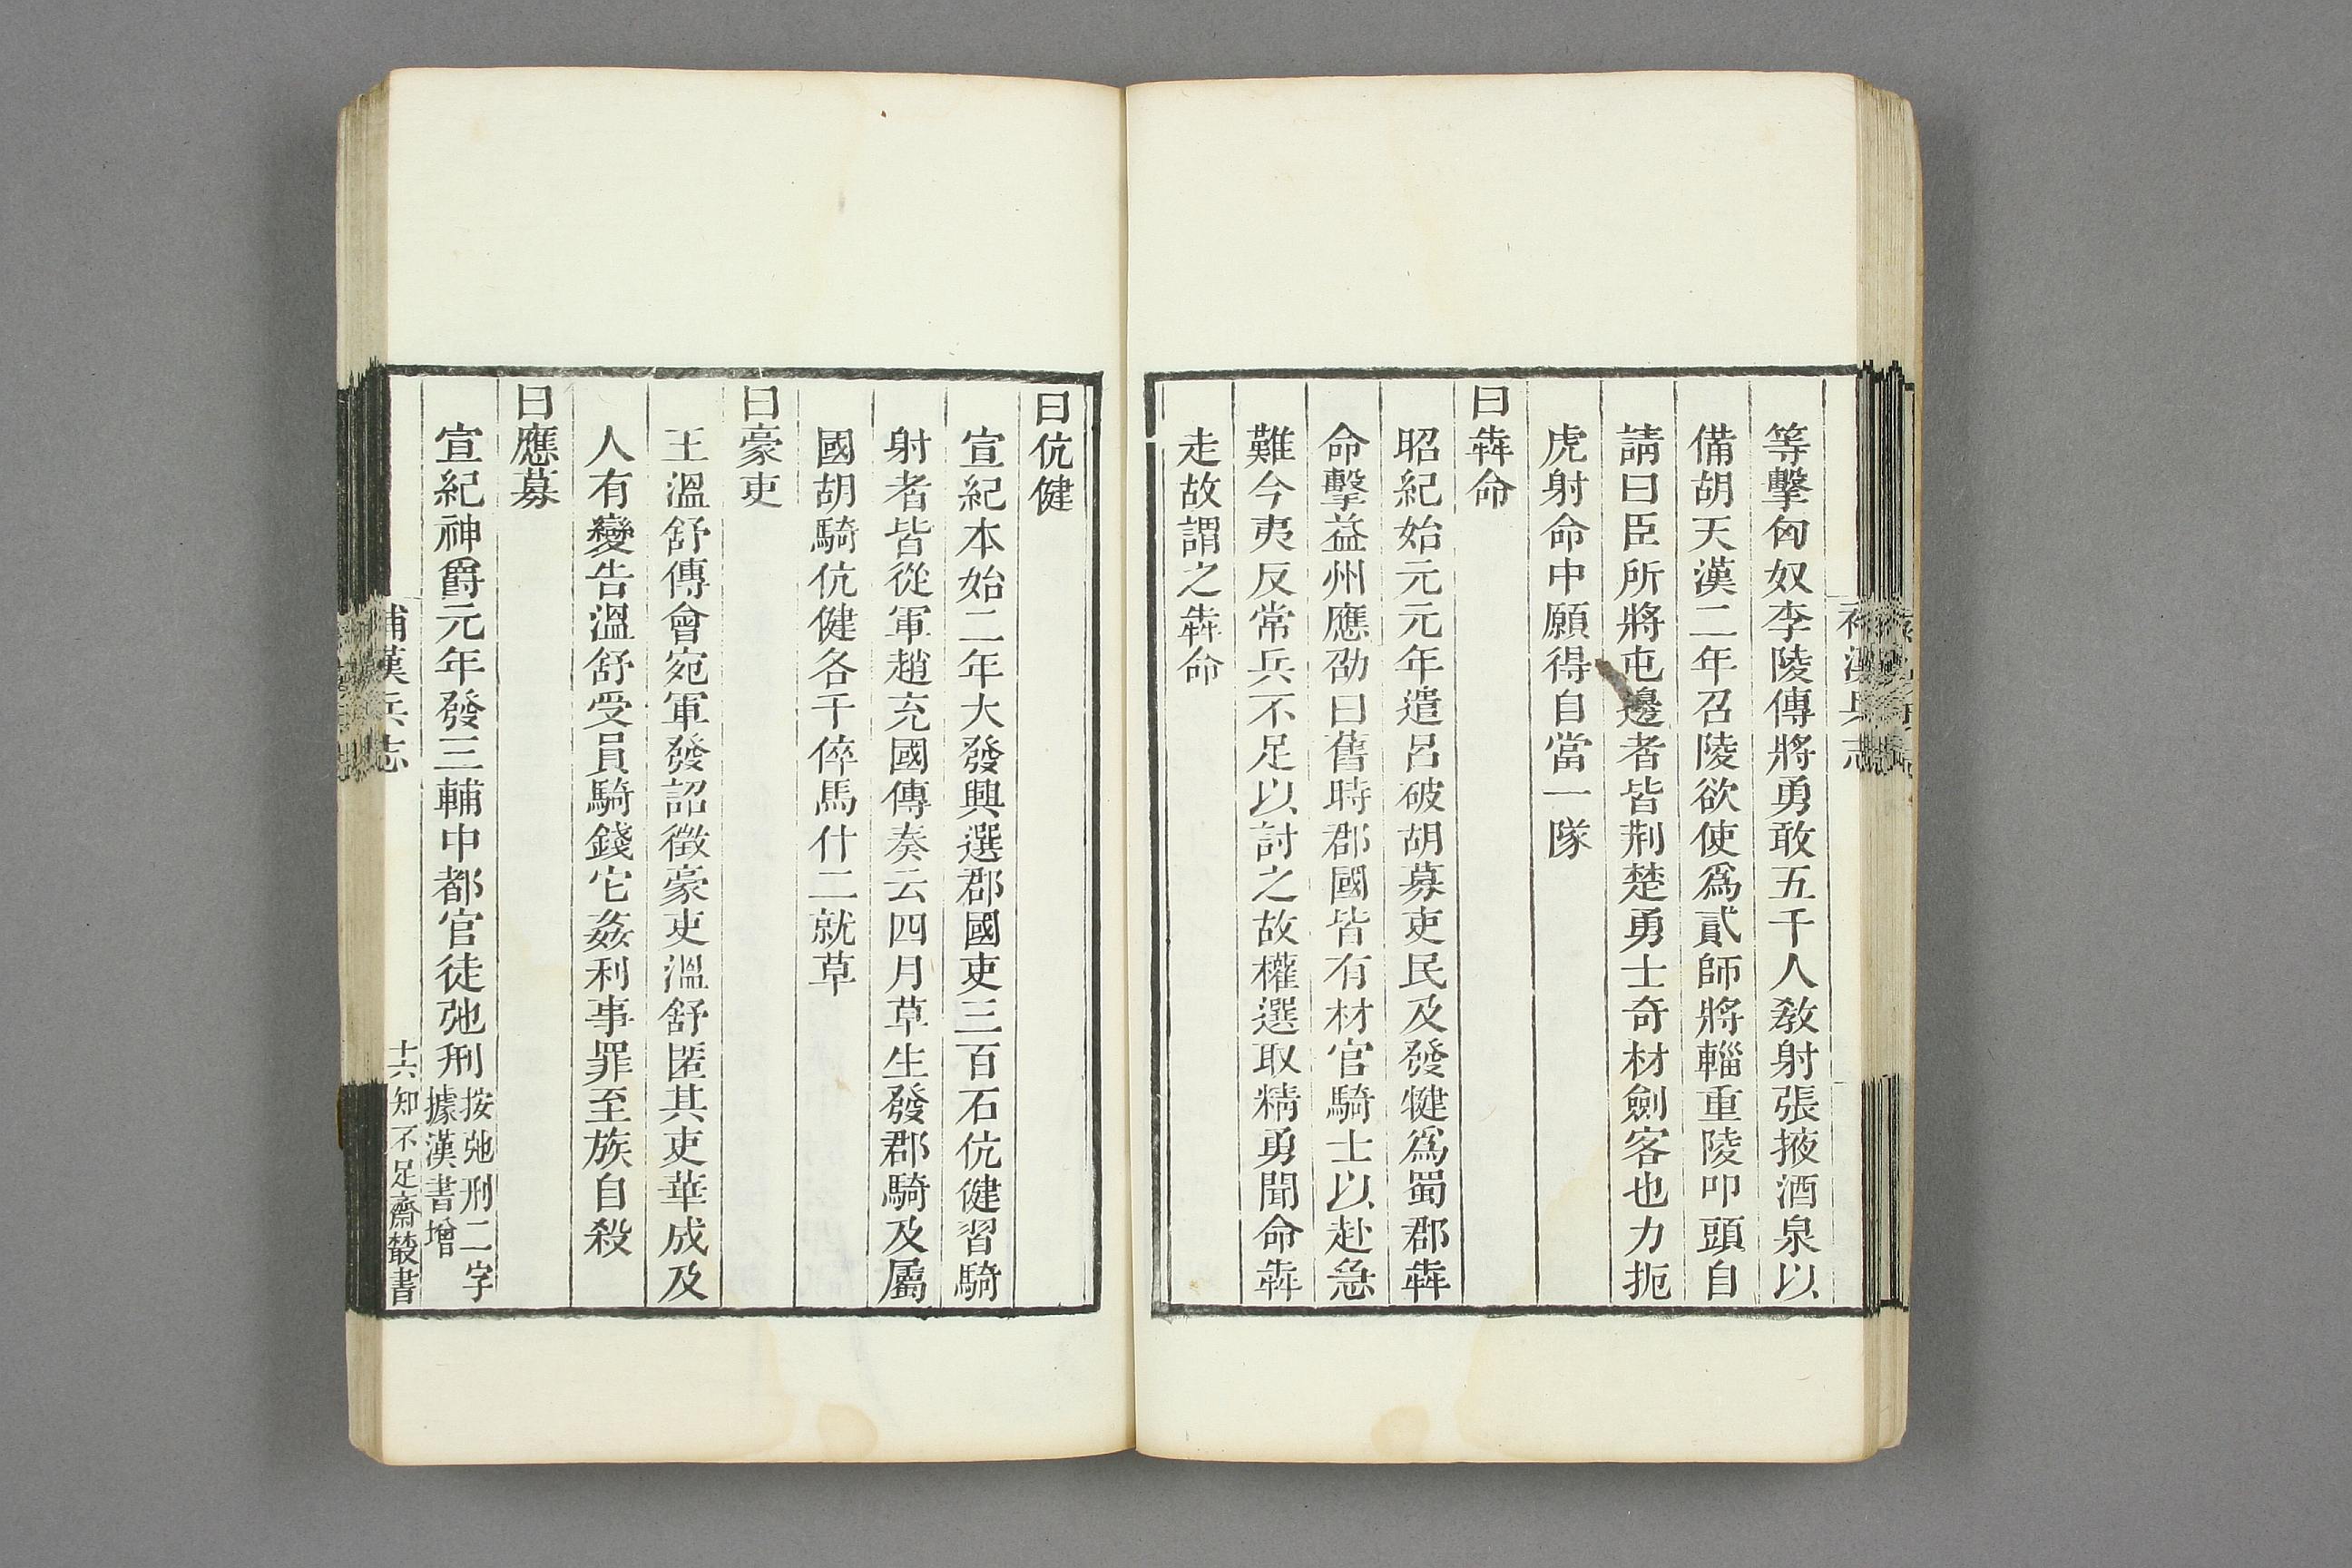 等擊匈奴李陵傳將勇敢五千人教射張掖酒泉以
備胡天漢二年召陵欲使爲貳師將輜重陵叩頭自
請曰臣所將屯邊者皆荆楚勇士奇材劍客也力扼
虎射命中願得自當一隊
曰犇命
昭紀始元元年遣呂破胡募吏民及發犍爲蜀郡犇
命擊益州應劭曰舊時郡國皆有材官騎士以赴急
難今夷反常兵不足以討之故權選取精勇聞命犇
走故謂之犇命
曰伉健
宣紀本始二年大發興選郡國吏三百石伉健習騎
射者皆從軍趙充國傳奏云四月草生發郡騎及屬
國胡騎伉健各千倅馬什二就草
曰豪吏
王溫舒傳會宛軍發詔徵豪吏溫舒匿其吏華成及
人有變告溫舒受員騎錢它姦利事罪至族自殺
曰應募
宣紀神爵元年發三輔中都官徒弛刑按弛刑二字
據漢書增
補漢兵志
十六知不足齋叢書